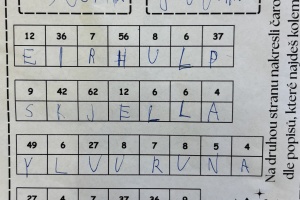 12 36 7 56 8 6 37
E I R H U L P
9 42 62 12 8 8 4
S K J E L L A
49 6 27 7 8 7 5 4
Y L V U R U N A
27 4 7 37 36 9
Na druhou stranu nakresli čaro
dle popisů, které najdeš kolem